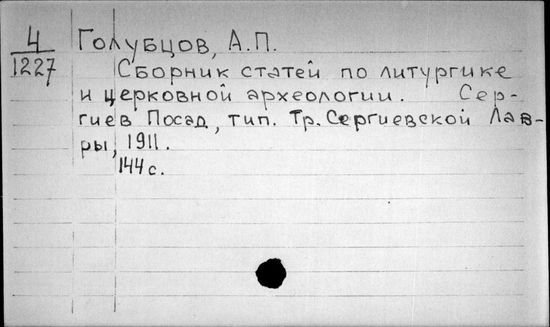 4 Голубцов, А.П.
1227 Сборник статей по литургике
и церковной археологии. Сер-
гиев Посад, тип. Тр. Сергиевской Лав-
ры, 1911.
144 с.